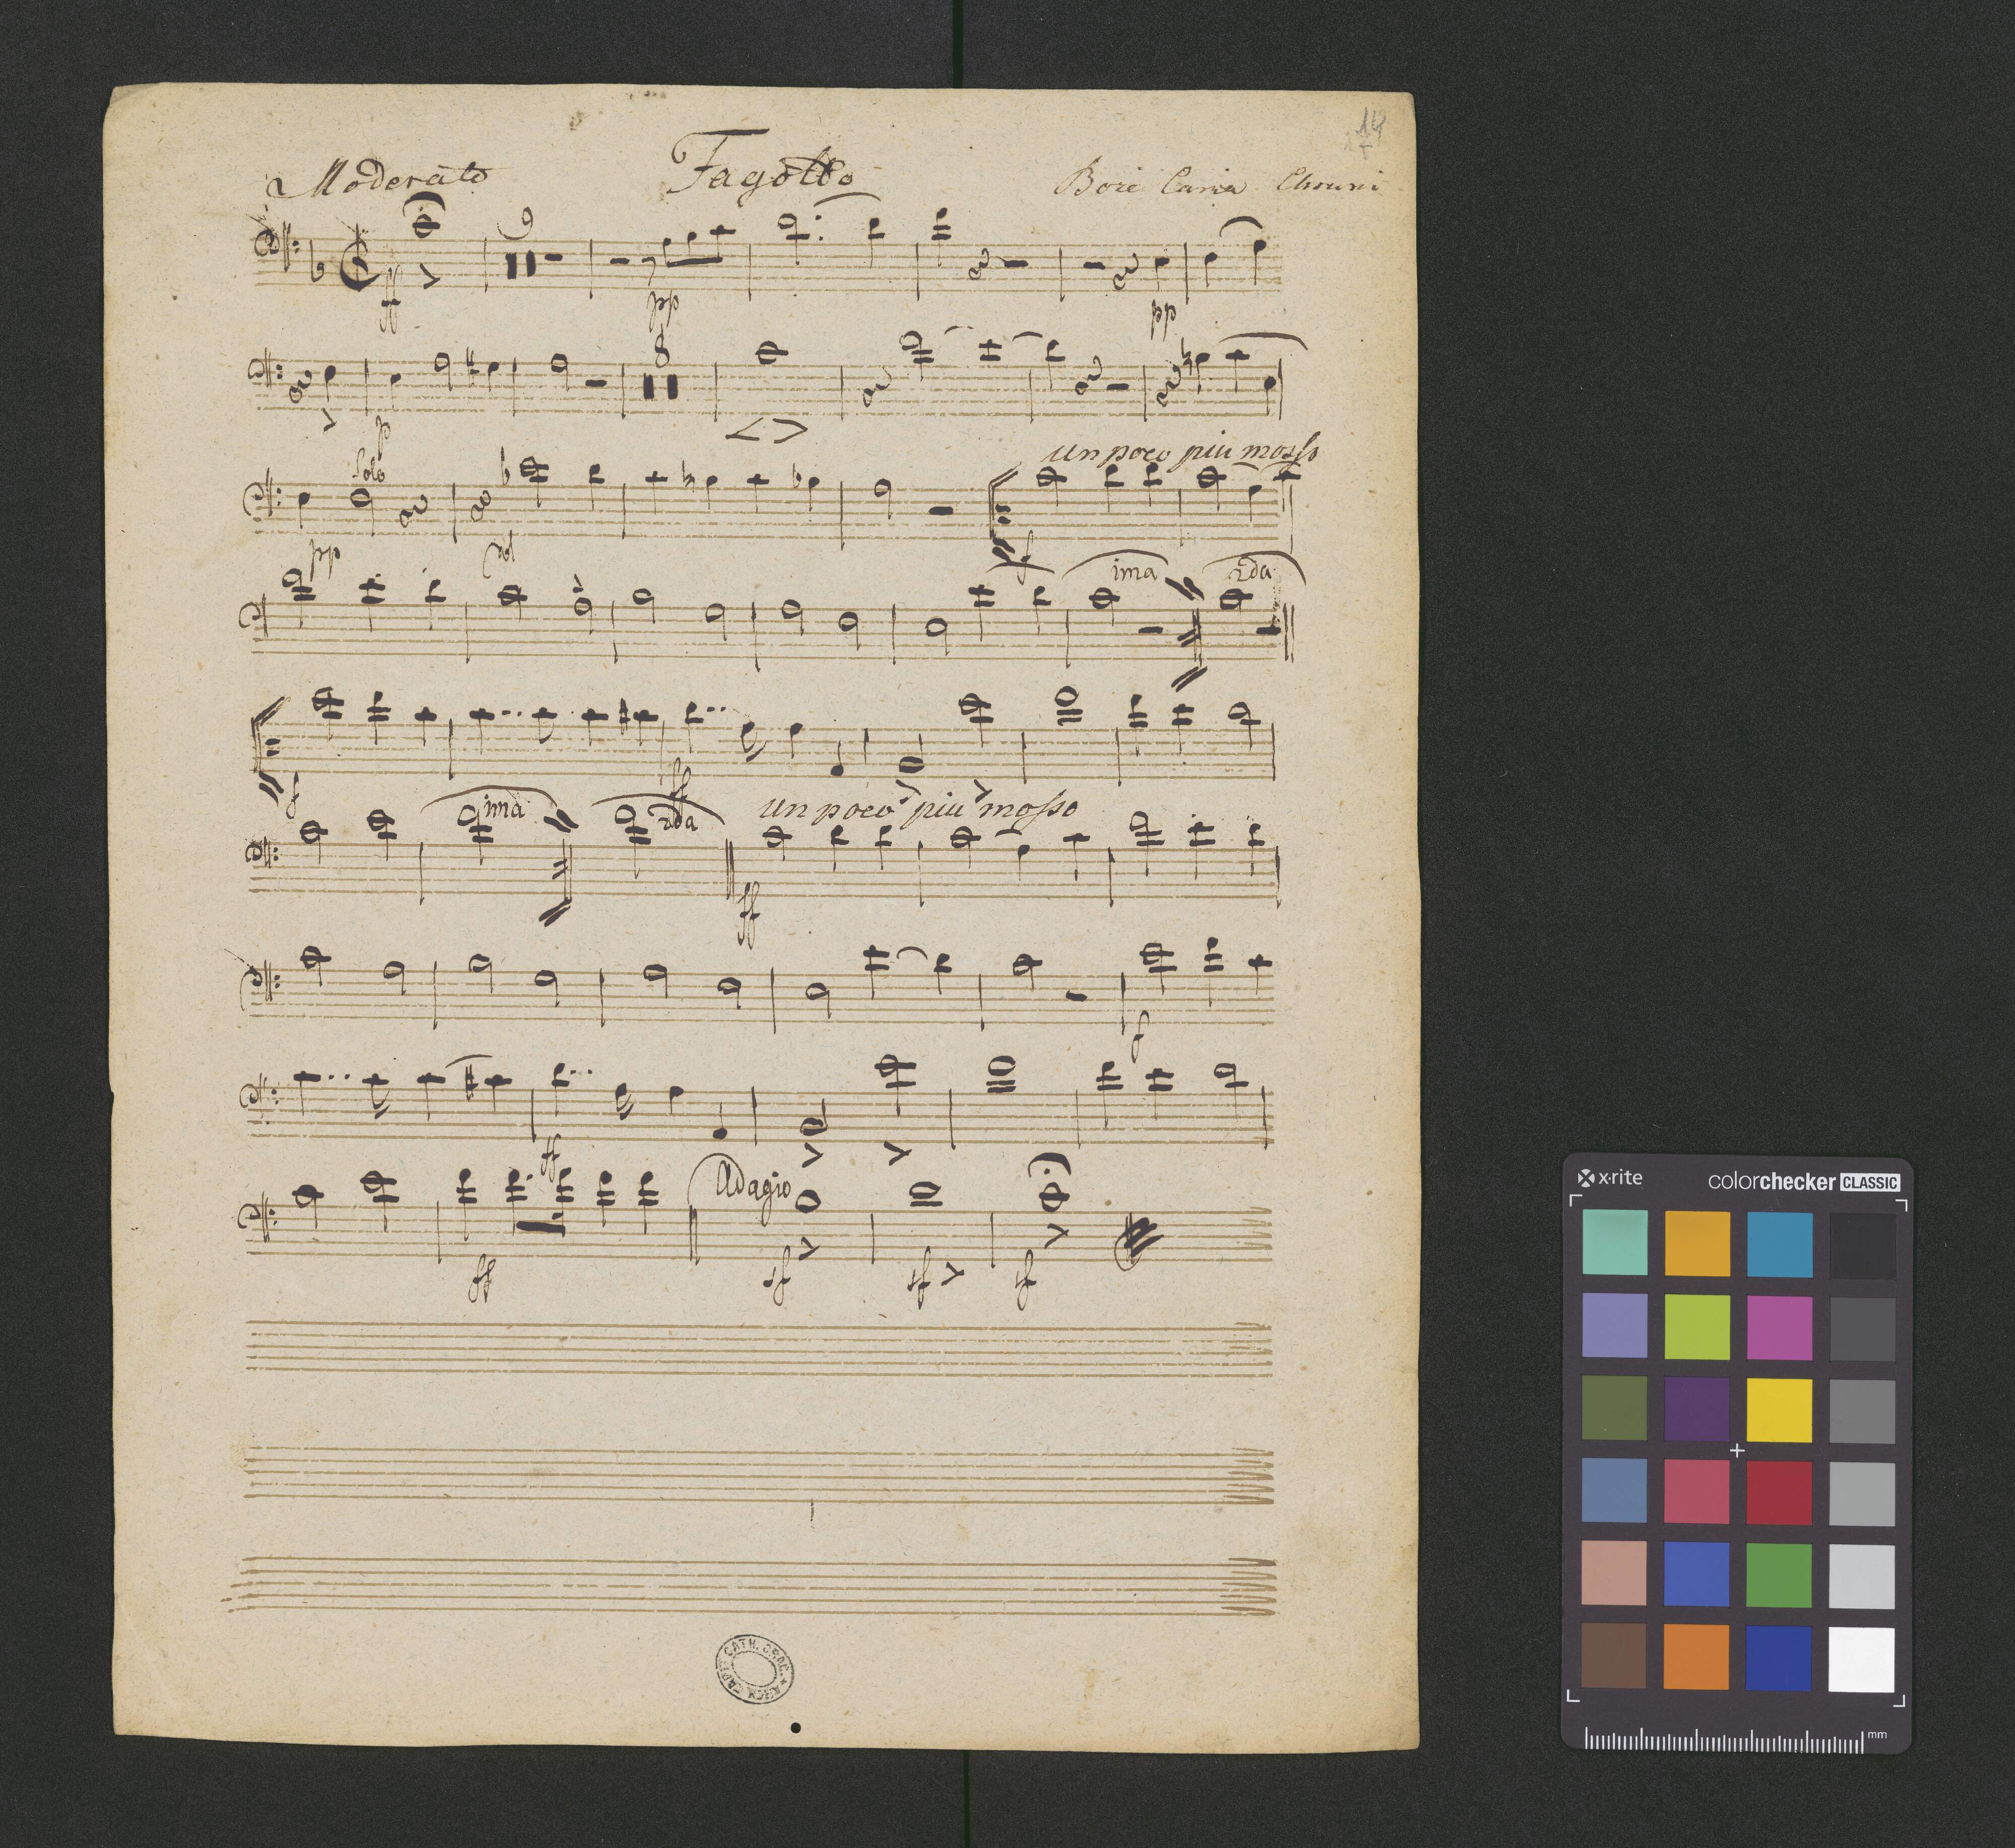 14
Moderato Fagotto Bozé Caria Chrani
9
ff pp pp
8
p
un poco piu mosso
Solo
pp f
ima 2da
f ff
ima 2da un poco piu mosso
ff
f
ff
Adagio
ff sf sf sf
x-rite colorchecker CLASSIC
mm